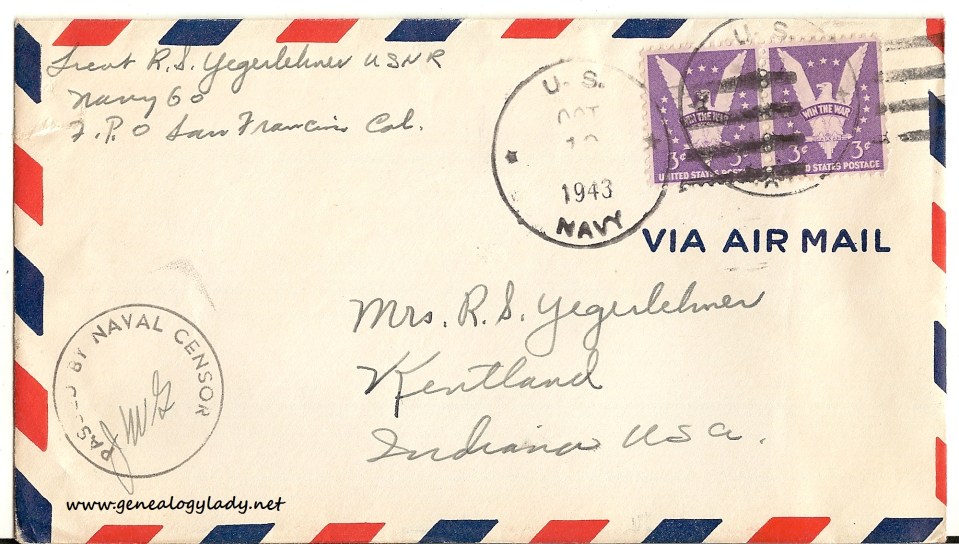 Lieut R.S. Yegerlehner USNR
Navy 60
F.P.O San Francisco Cal.
U. S.
OCT
1943
NAVY
U. S.
WIN THE WAR
3¢ 3¢
UNITED STATES POSTAGE
WIN THE WAR
3¢ 3¢
UNITED STATES POSTAGE
VIA AIR MAIL
Mrs. R.S. Yegerlehner
Kentland
Indiana USA.
PASSED BY NAVAL CENSOR
www.genealogylady.net